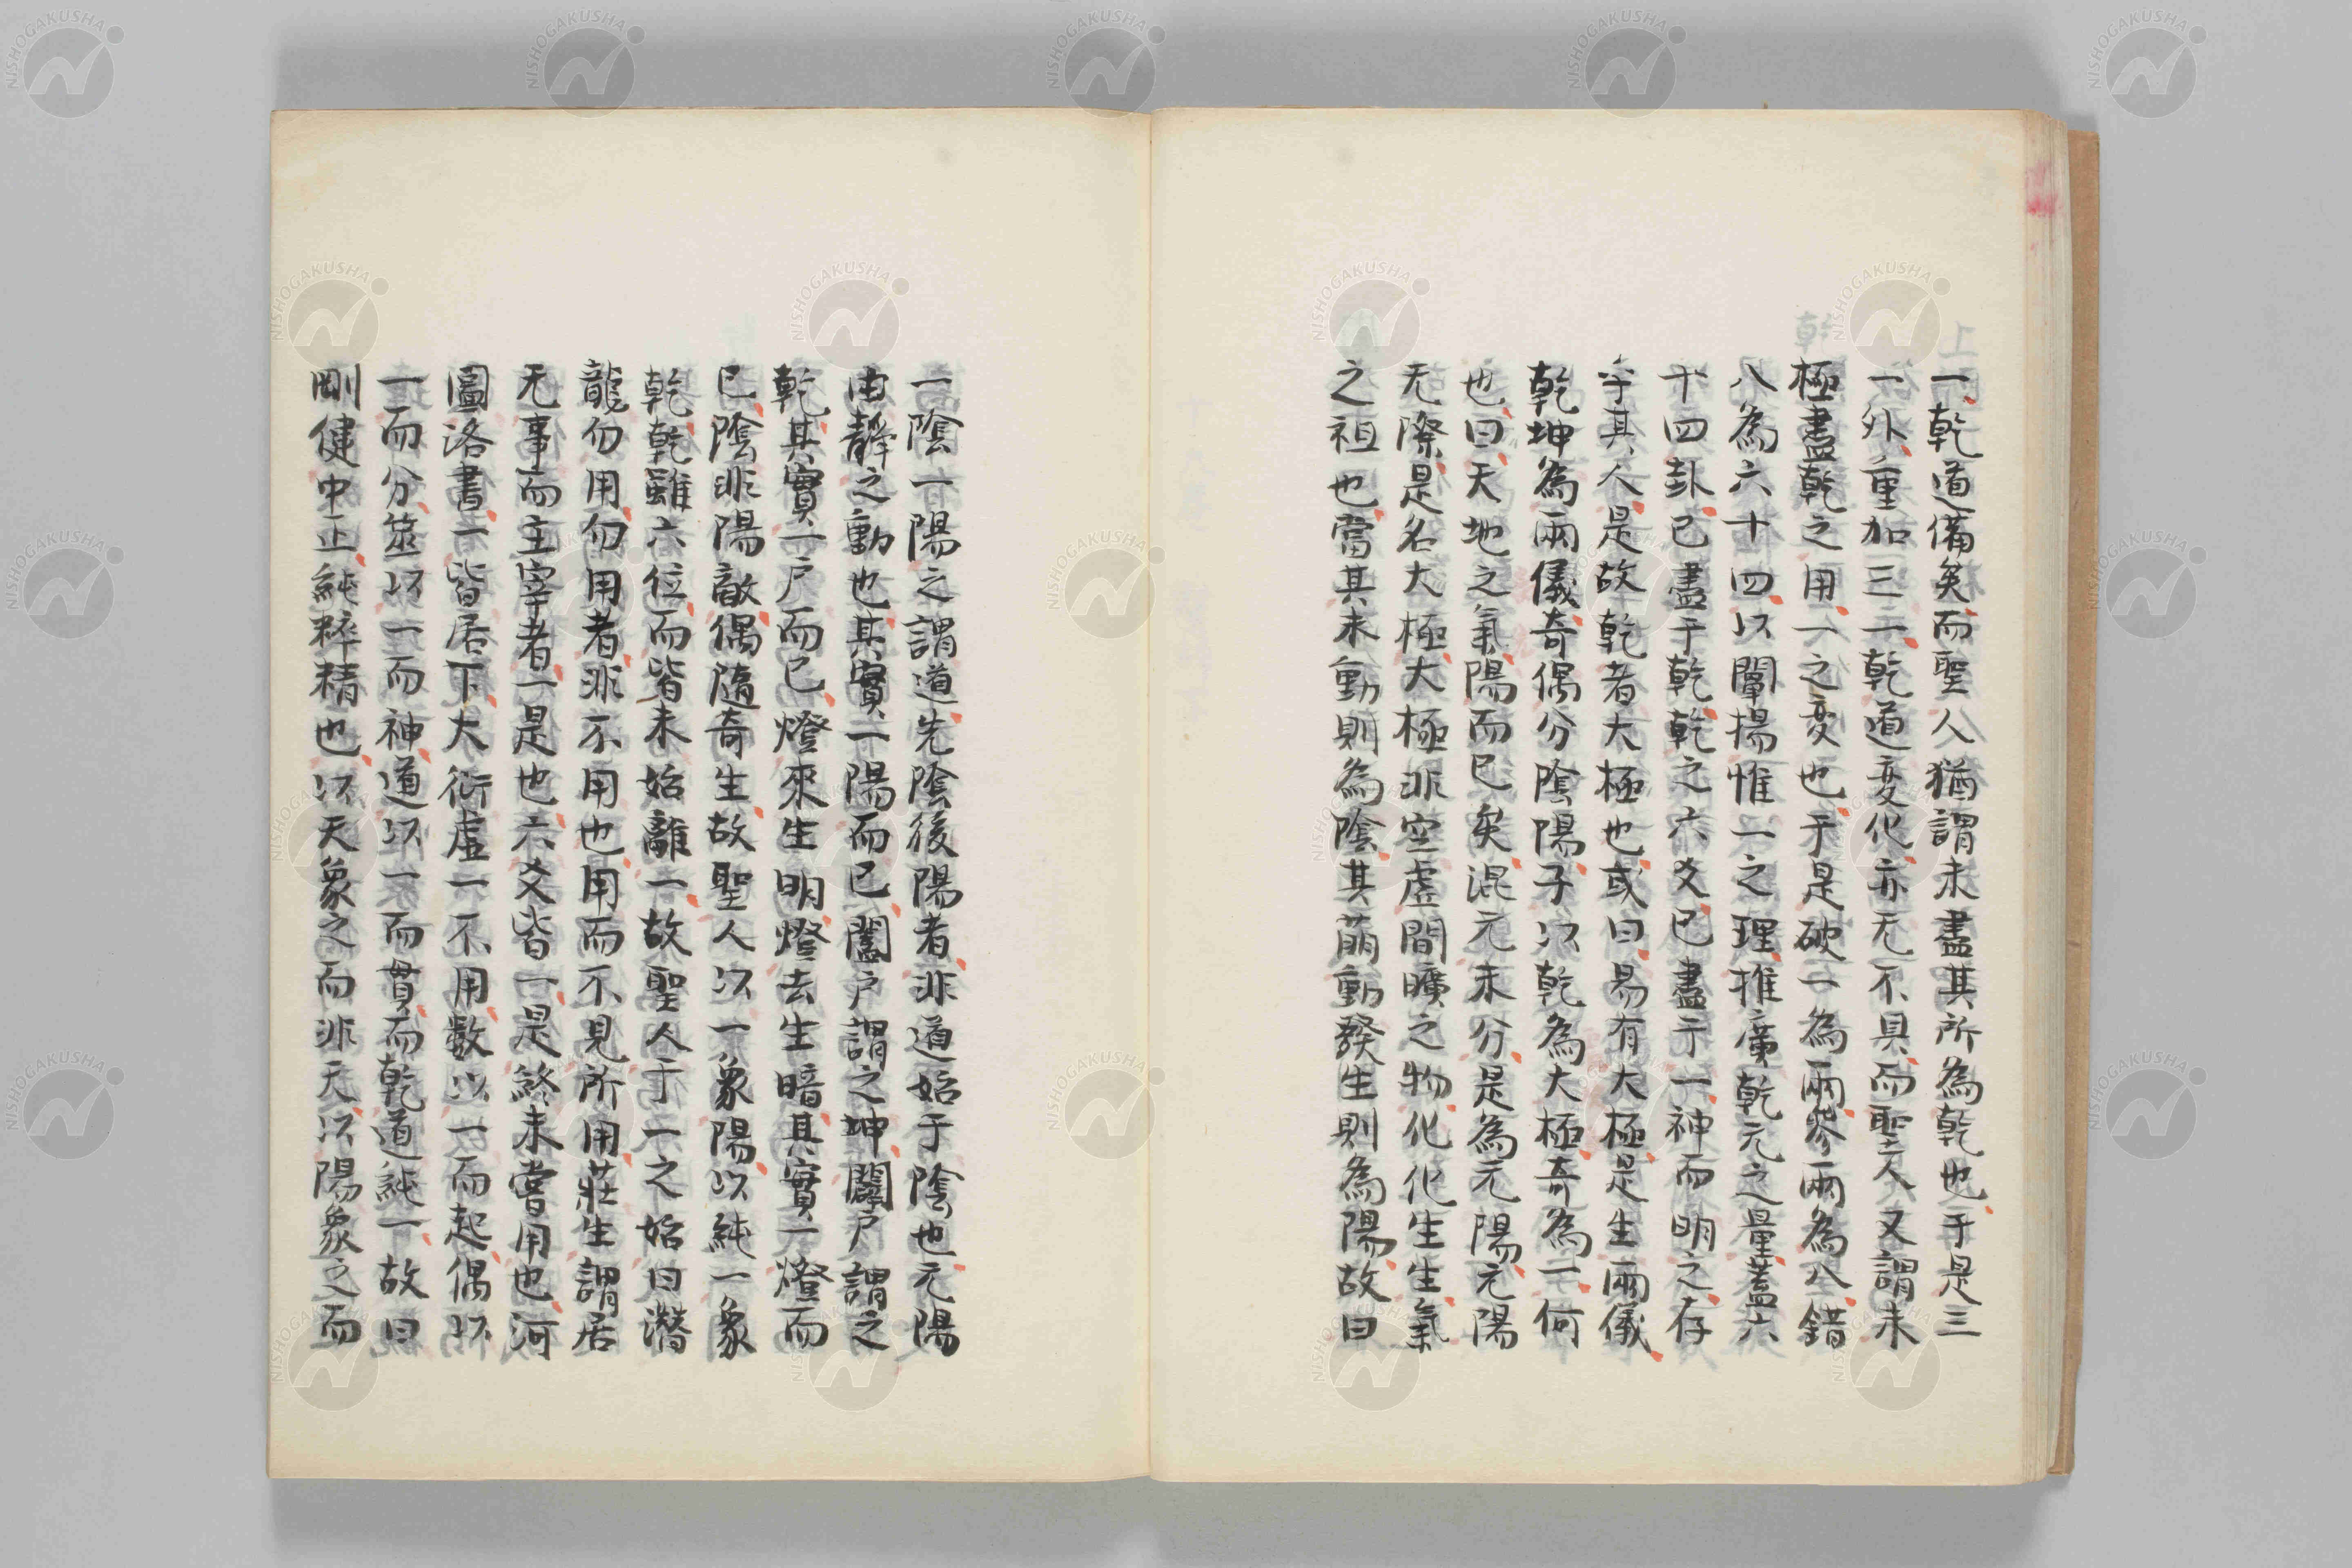 一乾道備矣而聖人猶謂未盡其所為乾也于是三
一外重加三一乾道变化亦无不具而聖人又謂未
極盡乾之用一之变也于是破一為兩參兩為八錯
八為六十四以闡揚惟一之理推廣乾元之量蓋六
十四卦已盡于乾乾之六爻已盡于一神而明之存
乎其人是故乾者大極也或曰易有大極是生兩儀
乾坤為兩儀奇偶分陰陽子以乾為大極奇為一何
也曰天地之氣陽而已矣混元未分是為元陽元陽
无際是名大極大極非空虛間曠之物化化生生氣
之祖也當其未動則為陰其萠動發生則為陽故曰
一陰一陽之謂道先陰後陽者非道始于陰也元陽
由靜之動也其實一陽而已闔戶謂之坤闢戶謂之
乾其實一戶而已燈來生明燈去生暗其實一燈而
已陰非陽敵偶隨奇生故聖人以一象陽以純一象
乾乾雖六位而皆未始離一故聖人于一之始曰潛
龍勿用勿用者非不用也用而不見所用莊生謂居
无事而主宰者一是也六爻皆一是終未嘗用也河
圖洛書一皆居下大衍虛一不用数以一而起偶以
一而分筮以一而神道以一而貫而乾道純一故曰
剛健中正純粹精也以天象之而非天以陽象之而
NISHOGAKUSHA